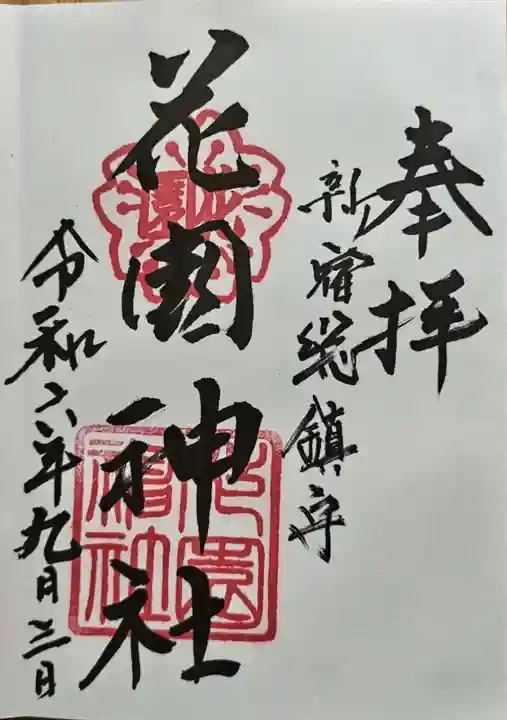 奉拝
新宿総鎮守
花園神社
令和六年九月三日
花園
神社